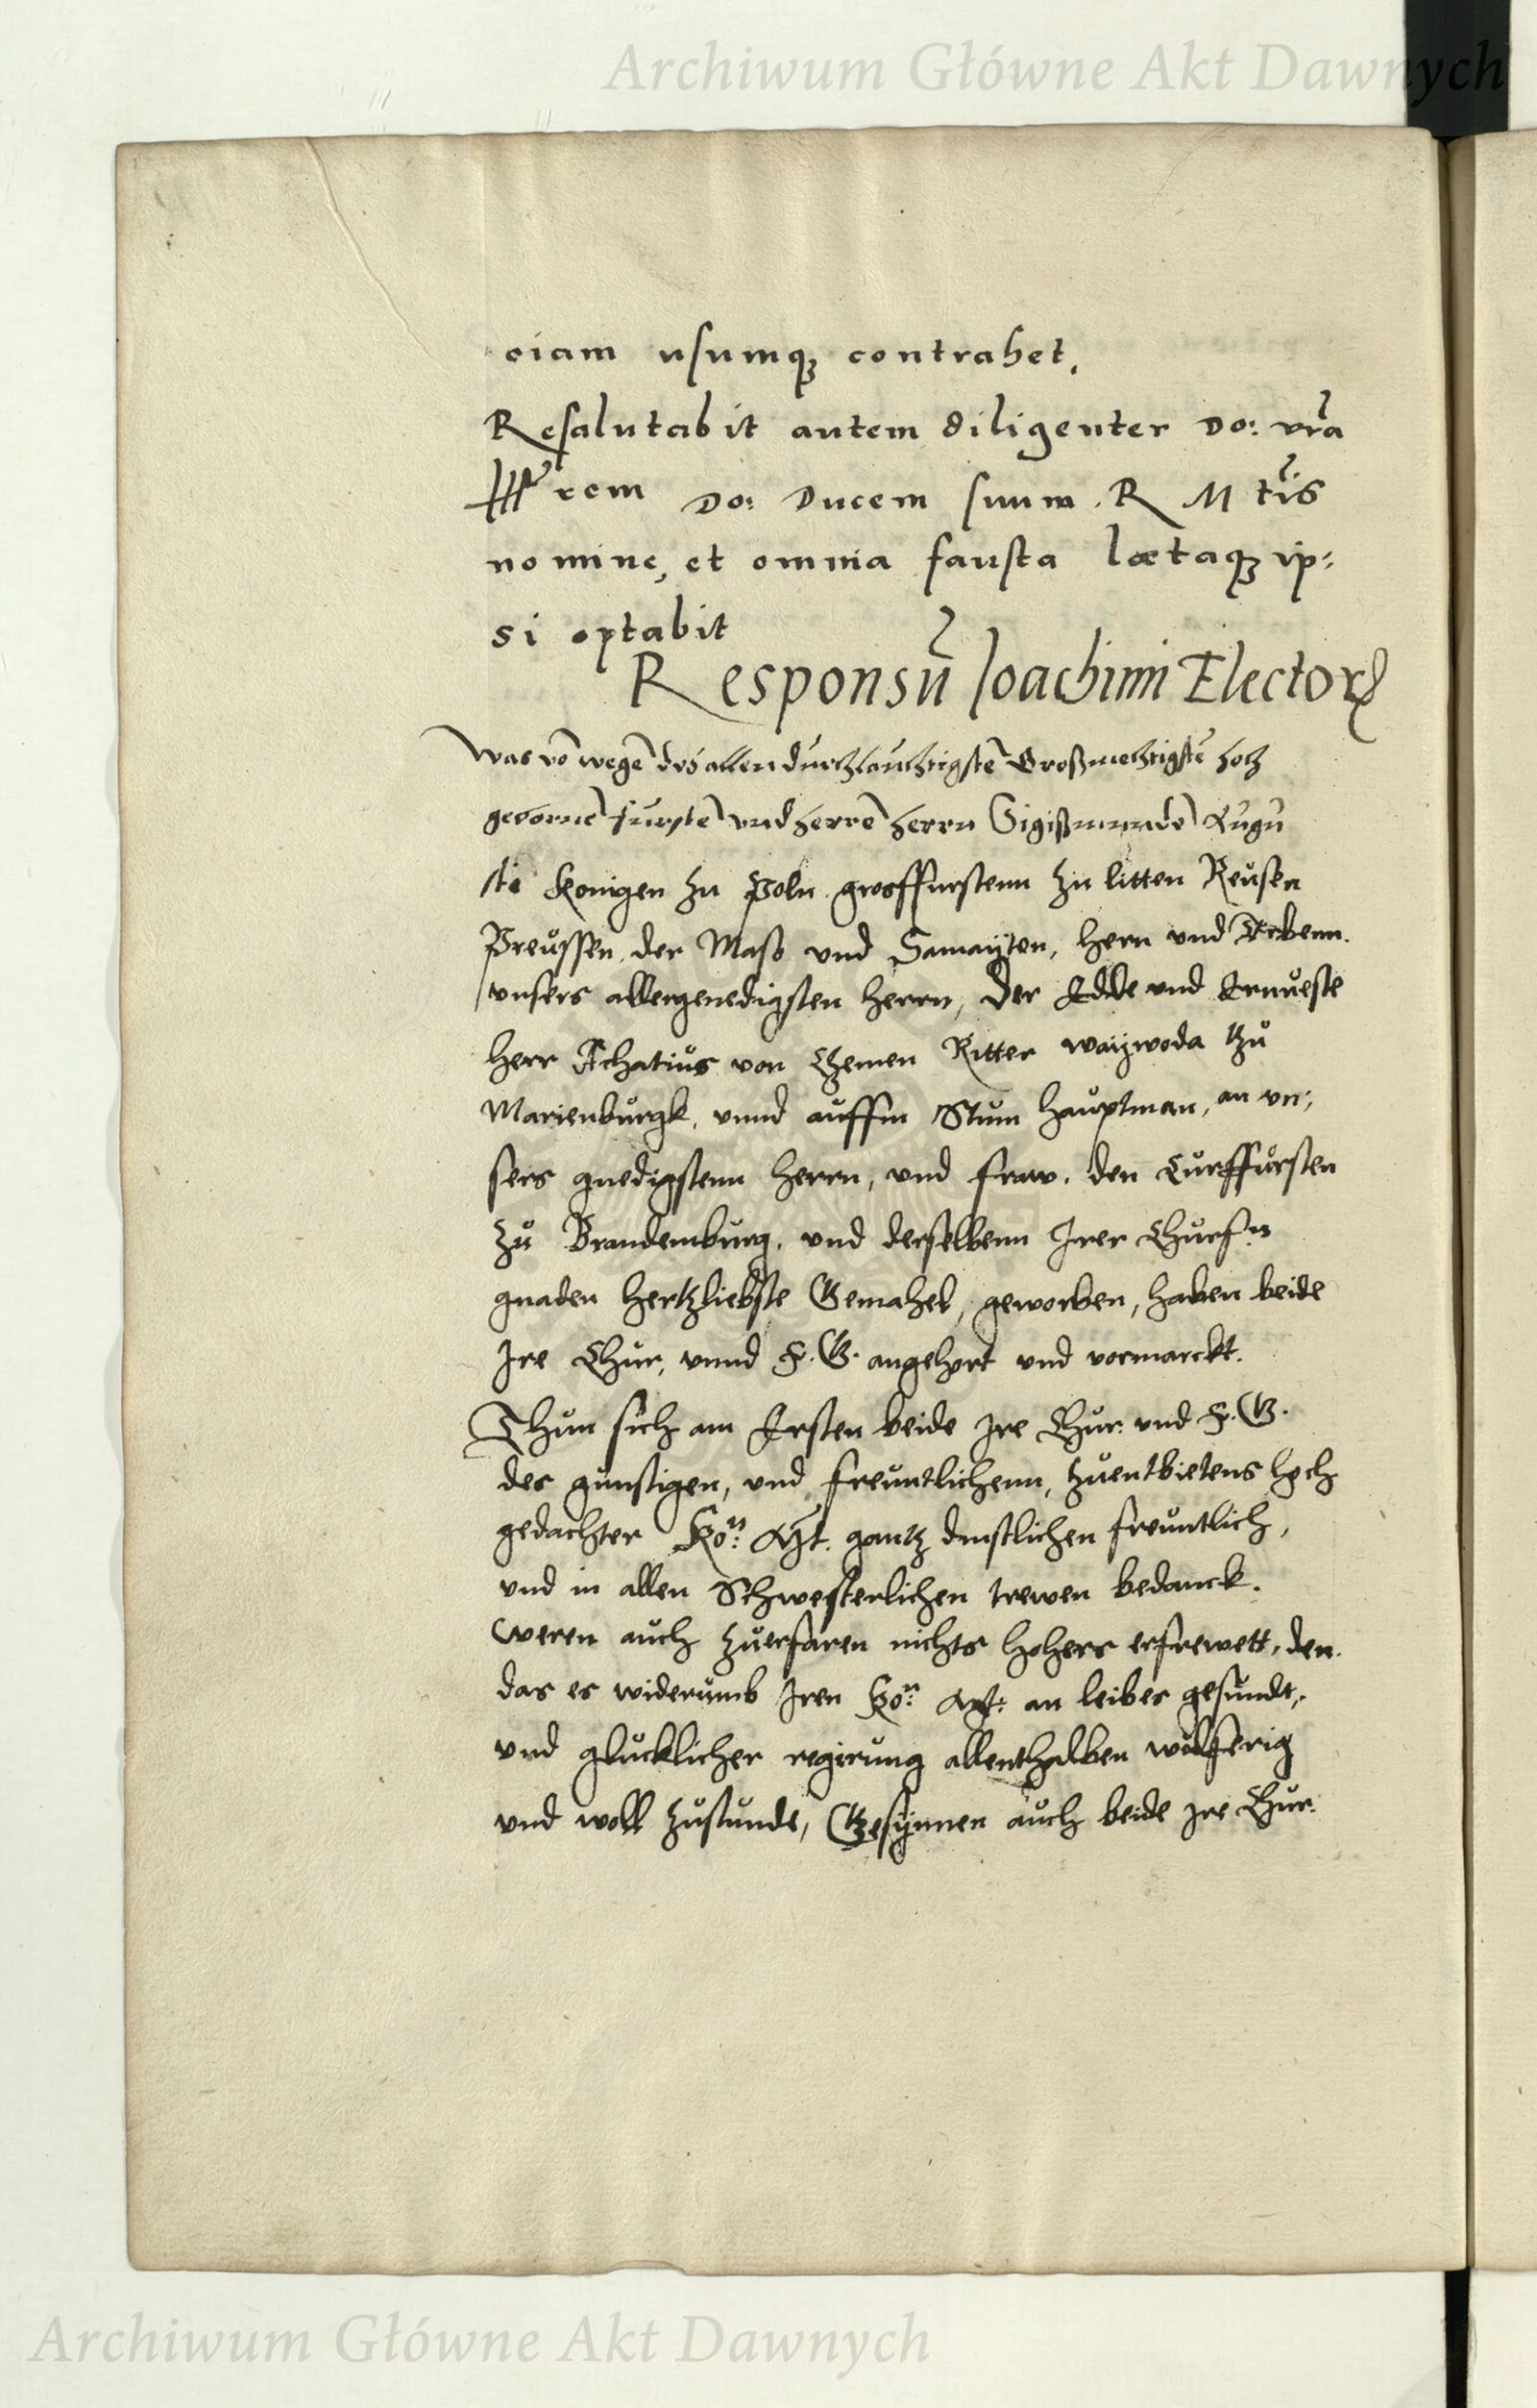 Archiwum Główne Akt Dawnych
ciam usumqȝ contrahet,
Resalutabit autem diligenter Do: vr̃a
Illr̃em Do: Ducem suum R Mtĩs
nomine, et omnia fausta lætaqȝ ip:
si optabit
Responsũ Ioachimi Elector
Was võ wegẽ des allen durchlauchtigstẽ Großmechtigstẽ hoch
gebornẽ furstẽ und herrẽ herrn Sigißmundẽ Augu
sti Konigen zu Poln grosffurstenn zu litten Reusen
Preussen, der Mass und Samayten, hern und Erbenn.
unsers allergenedigsten herrn, der Edle und Ernueste
herr Achatius von Czemen Ritter waywoda tzu
Marienburgk, unnd auffm Stum hauptman, an un:
sers gnedigstenn herrn, und fraw, den Curffursten
zu Brandemburg, und derselbenn Irer Churf n
gnaden hertzliebste Gemahel, geworben, haben beide
Ire Chur, unnd F. G. angehort und vormarckt.
Thun sich am Ersten beide Ire Chur: und F. G.
des gunstigen, und freuntlichenn, zuentbietens hoch
gedachter Ko: Mt. gantz dinstlichen freuntlich,
und in allen Schwesterlichen trewen bedanck.
weren auch zuerfaren nichts hohers erfrewett, den
das es widerumb Iren Ko: Mt: an leibes gesundt,
und glucklicher regirung allenthalben wulferig
und woll zustunde, Gesynnen auch beide Ire Chur:
Archiwum Główne Akt Dawnych